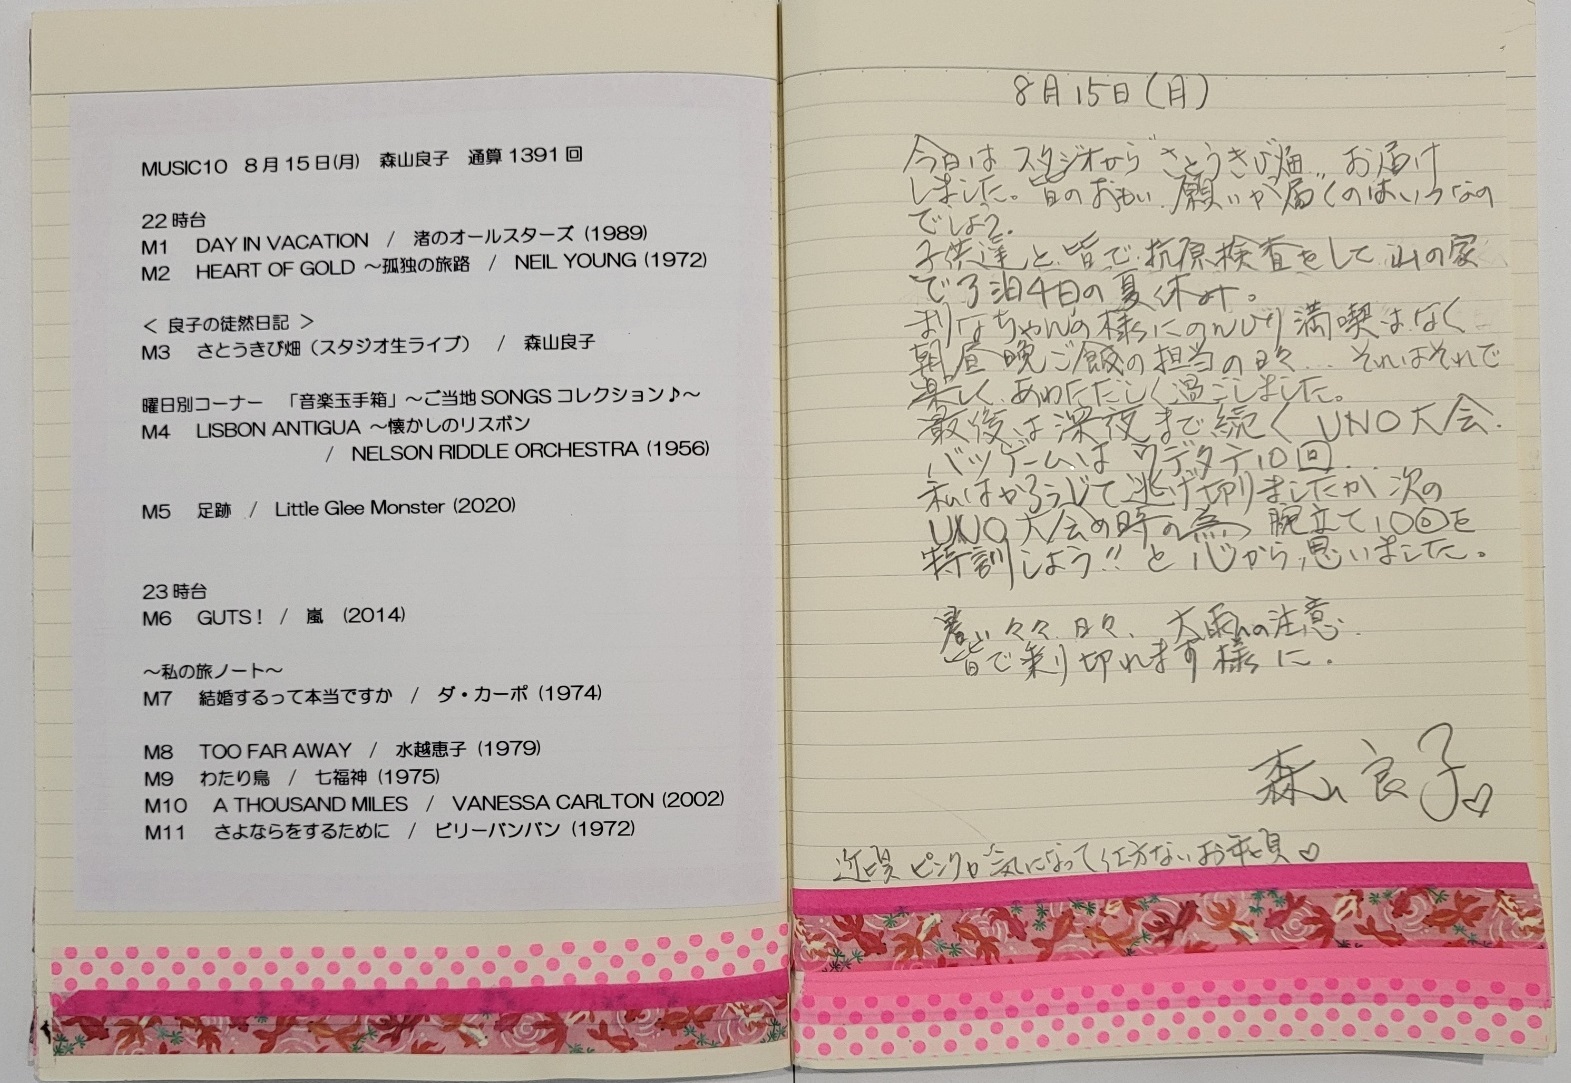 MUSIC10 8月15日(月) 森山良子 通算1391回
22時台
M1 DAY IN VACATION / 渚のオールスターズ (1989)
M2 HEART OF GOLD ～孤独の旅路 / NEIL YOUNG (1972)
＜ 良子の徒然日記 ＞
M3 さとうきび畑（スタジオ生ライブ） / 森山良子
曜日別コーナー 「音楽玉手箱」～ご当地SONGSコレクション♪～
M4 LISBON ANTIGUA ～懐かしのリスボン
/ NELSON RIDDLE ORCHESTRA (1956)
M5 足跡 / Little Glee Monster (2020)
23時台
M6 GUTS！ / 嵐 (2014)
～私の旅ノート～
M7 結婚するって本当ですか / ダ・カーポ (1974)
M8 TOO FAR AWAY / 水越恵子 (1979)
M9 わたり鳥 / 七福神 (1975)
M10 A THOUSAND MILES / VANESSA CARLTON (2002)
M11 さよならをするために / ビリーバンバン (1972)
8月15日(月)
今日は スタジオから "さとうきび畑" お届け
しました。皆のおもい 願いが届くのはいつなの
でしょう?
子供達と皆で抗原検査をして 山の家
で3泊4日の夏休み。
まりなちゃんの様にのんびり満喫はなく
朝昼晩ご飯の担当の日々... それはそれで
楽しく、あわただしく過ごしました。
最後は深夜まで続くUNO大会.
バツゲームは ウデタテ10回...
私はかろうじて逃げ切りましたが 次の
UNO大会の時の為 腕立て10回を
特訓しよう!! と 心から思いました。
暑い 日々、大雨の注意
皆で乗り切れます様に.
森山良子♡
近頃 ピンクが気になって仕方ないお年頃♡